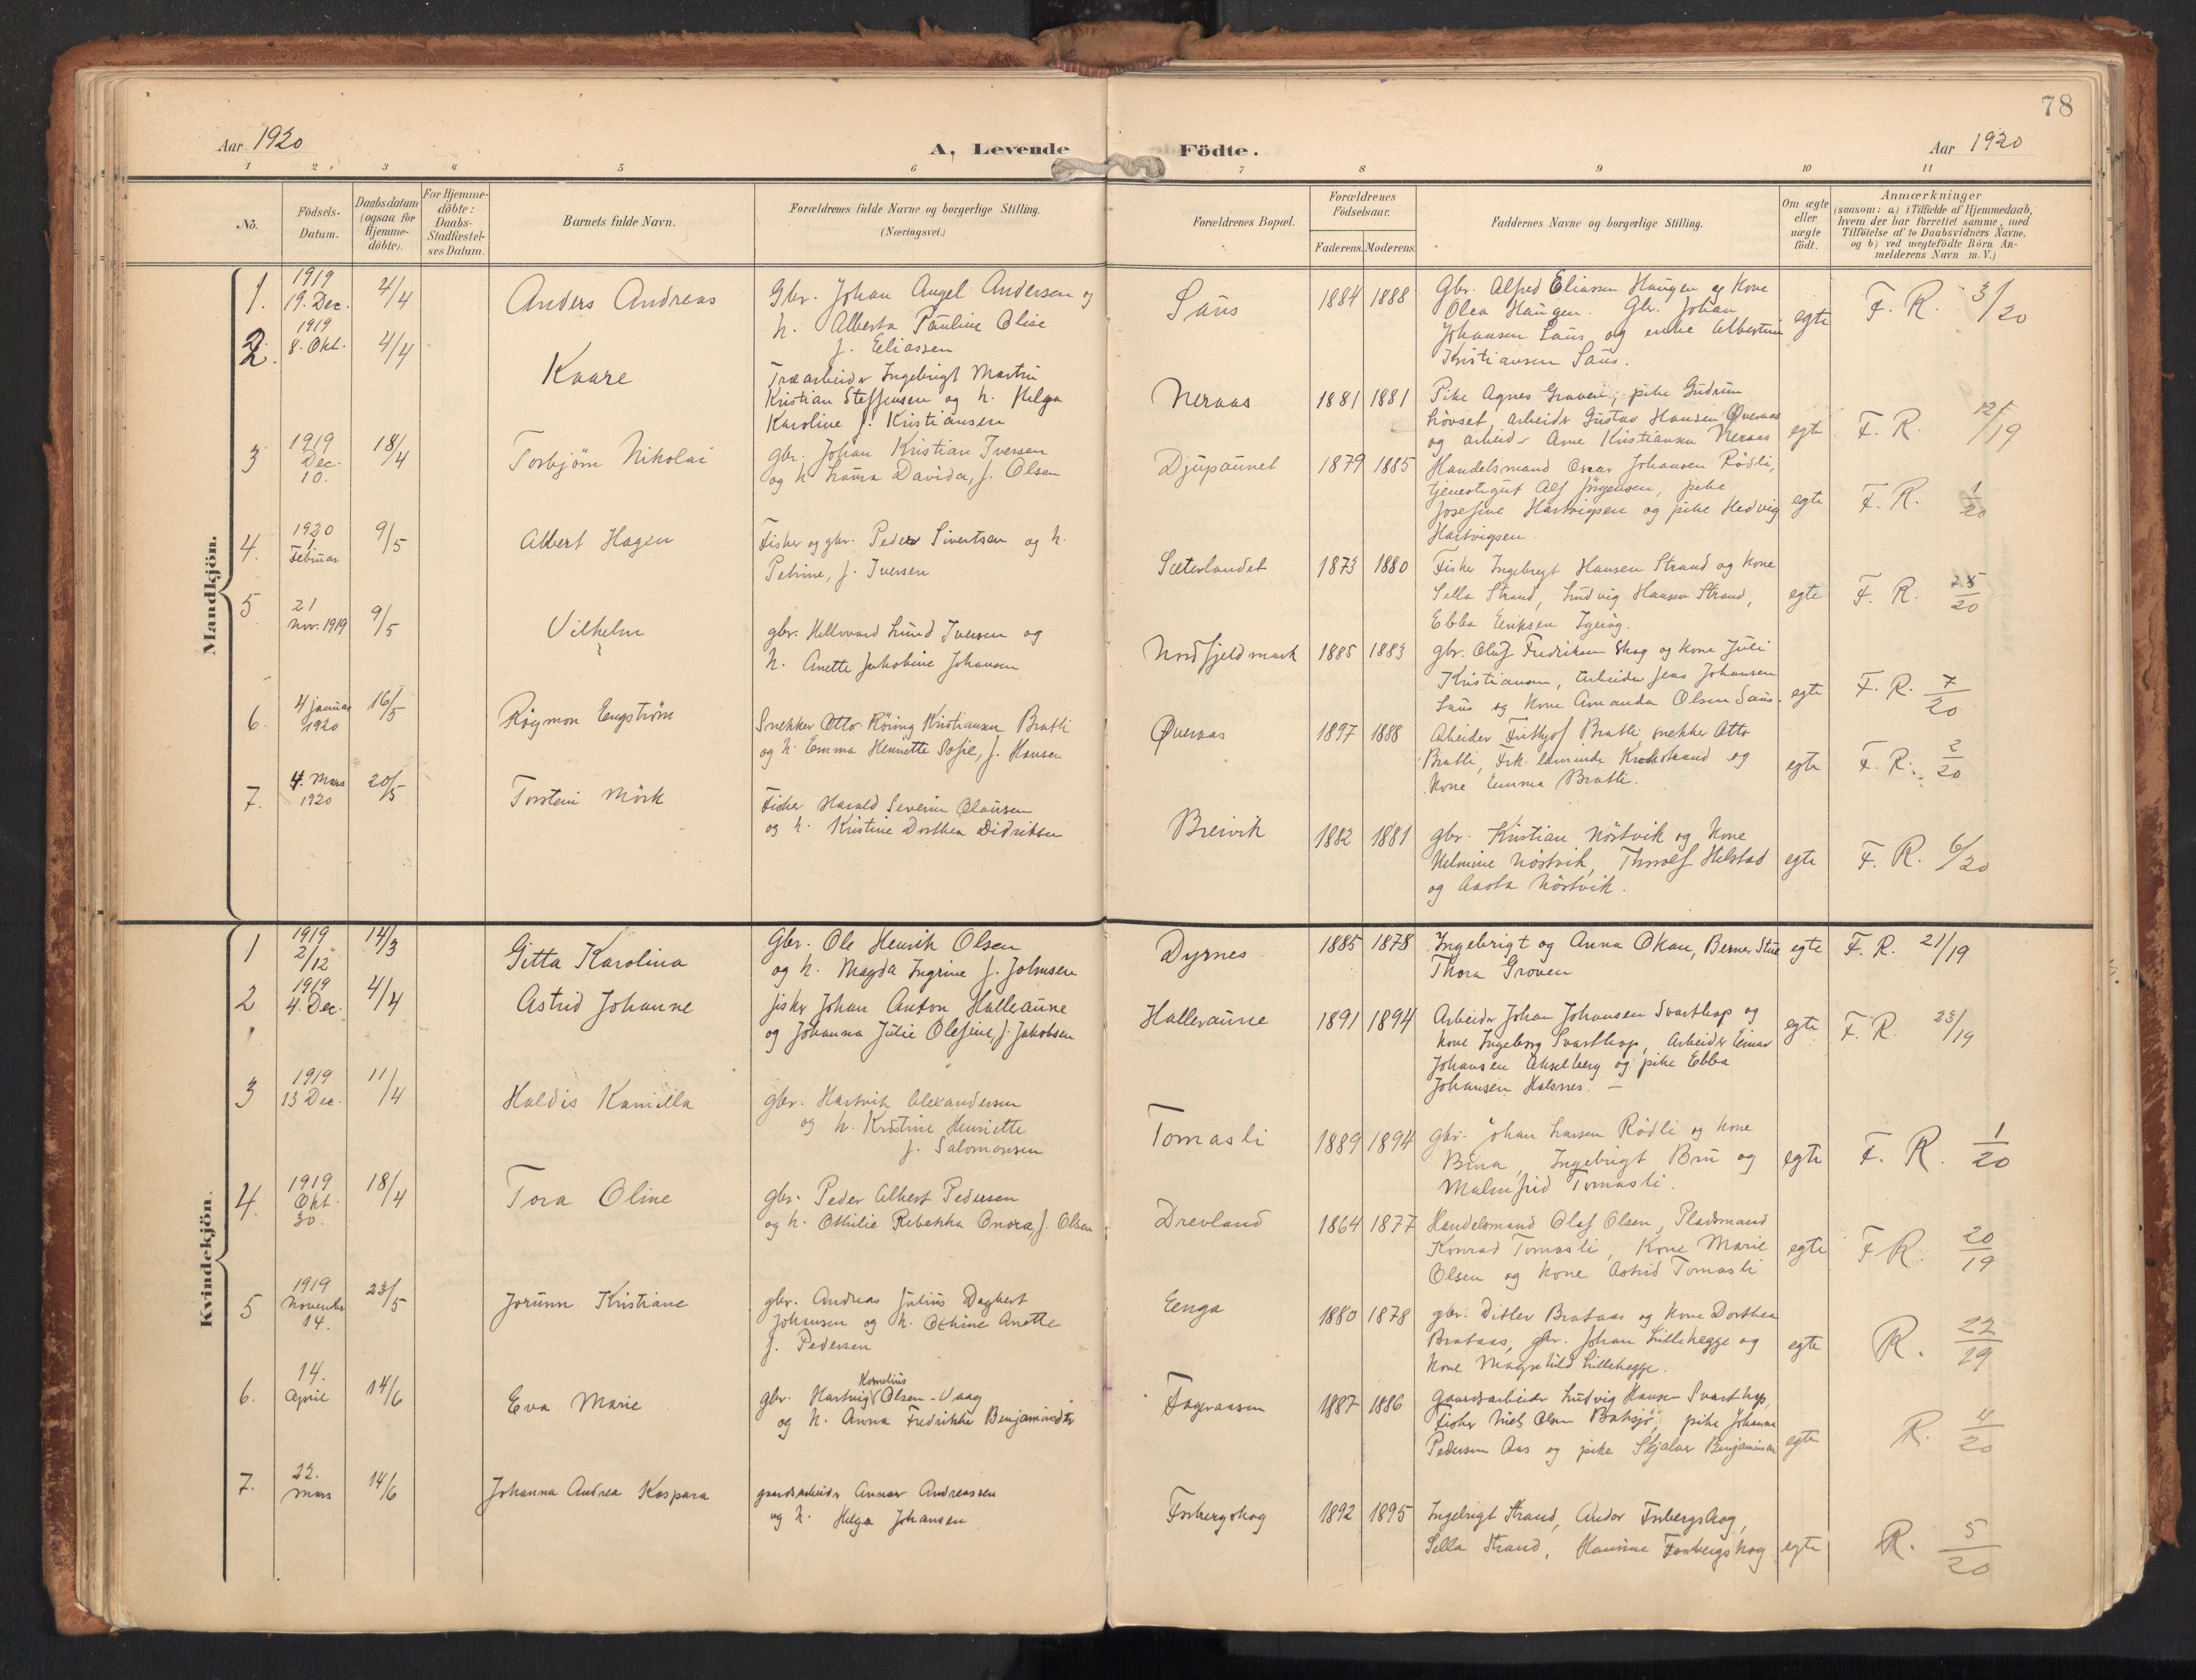 78
Aar 1920
A. Levende Födte.
Aar 1920
1 2 3 4 5 6 7 8 9 10 11
No.
Födsels-Datum.
Daabsdatum (ogsaa for Hjemme-döbte).
For Hjemme-döbte: Daabs-Stadfæstel-ses Datum.
Barnets fulde Navn.
Forældrenes fulde Navne og borgerlige Stilling.
(Næringsvei.)
Forældrenes Bopæl.
Forældrenes Födselsaar.
Faderens. Moderens.
Faddernes Navne og borgerlige Stilling.
Om ægte eller uægte födt.
Anmærkninger
(saasom: a) i Tilfælde af Hjemmedaab,
hvem der har forrettet samme, med
Tilföielse af to Daabsvidners Navne,
og b) ved uægtefödte Börn An-
melderens Navn m. V.)
Mandkjön.
1. 1919 19. Dec. 4/4 Anders Andreas
Gbr. Johan Angel Andersen og
h. Alberta Pauline Elise
f. Eliassen
Saus 1884 1888
Gbr. Alfred Eliassen Haugen og kone
Olea Haugen. Gbr. Johan
Johansen Saus og enke Albertine
Kristiansen Saus.
egte F. R. 3/20
2. 1919 8. Okt. 4/4 Kaare
Træarbeider Ingebrigt Martin
Kristian Steffensen og h. Helga
Karoline f. Kristiansen
Neraas 1881 1881
Pike Agnes Groven, pike Gudrun
Hövset, arbeider Gustav Hansen Øveraas
og arbeider Arne Kristiansen Neraas
egte F. R. 12/19
3 1919 Dec. 10. 18/4 Torbjörn Nikolai
gbr. Johan Kristian Iversen
og h. Laura Davida, f. Olsen
Djupaunet 1879 1885
Handelsmand Oscar Johansen Rödli,
tjenestegut Alf Jörgensen, pike
Josefine Hartvigsen og pike Hedvig
Hartvigsen.
egte F. R. 1/20
4. 1920 1 Februar 9/5 Albert Hagen
Fisker og gbr. Peder Sivertsen og h.
Petrine, f. Iversen
Sæterlandet 1873 1880
Fisker Ingebregt Hansen Strand og kone
Sella Strand, Ludvig Hansen Strand,
Ebba Eriksen
egte F. R. 25/20
5 21 Nov. 1919 9/5 Vilhelm
gbr. Hellvard Lund Iversen og
h. Anette Jakobine Johansen
Nordfjeldmark 1885 1883
gbr. Olaf Fredriksen Skog og kone Juli
Kristiansen, arbeider Jens Johansen
Saus og kone Amanda Olsen Saus.
egte F. R. 7/20
6. 4 januar 1920 16/5 Rögmon Engström
Snekker Otto Röring Kristiansen Bratli
og h. Emma Henriette Sofie, f. Hansen
Øveraas 1897 1888
Arbeider Fritjof Bratli, snekker Otto
Bratli, Frk. Laurinde Krokstrand og
kone Emma Bratli.
egte F. R. 2/20
7. 4. Mars 1920 20/5 Torstein Mörk
Fisker Harald Severin Olausen
og h. Kristine Dorthea Didriksen
Breivik 1882 1881
gbr. Kristian Nöstvik og kone
Helmine Nöstvik, Thorolf Helstad
og Aasta Nöstvik.
egte F. R. 6/20
Kvindekjön.
1 1919 2/12 14/3 Gitta Karolina
Gbr. Ole Henrik Olsen
og h. Magda Ingrine f. Johnsen
Dyrnes 1885 1878
Ingebrigt og Anna Okan, Berner Stue
Thora Groven
egte F. R. 21/19
2 1919 4. Dec. 4/4 Astrid Johanne
fisker Johan Anton Halleraune
og Johanna Julie Olefine, f. Jakobsen
Halleraune 1891 1894
Arbeider Johan Johansen Svarthop og
kone Ingeborg Svarthop, Arbeider Einar
Johansen Akselberg og pike Ebba
Johansen Halsnes. —
egte F. R. 23/19
3 1919 13 Dec. 11/4 Haldis Kamilla
gbr. Hartvik Alexandersen
og h. Kristine Henriette
f. Salomonsen
Tomasli 1889 1894
Gbr. Johan Larsen Rödli og kone
Bina, Ingebrigt Bru og
Malmfrid Tomasli.
egte F. R. 1/20
4. 1919 Okt. 30. 18/4 Tora Oline
gbr. Peder Albert Pedersen
og h. Othilie Rebekka Onora, f. Olsen
Drevland 1864 1877
Handelsmand Olaf Olsen, Pladsmand
Konrad Tomasli, Kone Marie
Olsen og kone Astrid Tomasli
egte F R. 20/19
5 1919 November 14. 23/5 Jorunn Kristiane
gbr. Andreas Julius Dagbert
Johansen og h. Othine Anette
f. Pedersen
Eenga 1880 1878
gbr. Ditlev Brataas og kone Dorthea
Brataas, gbr. Johan Lillehegge og
kone Magnhild Lillehegge.
egte R. 22/19
6. 14. April 14/6 Eva Marie
gbr. Hartvig Kornelius Olsen-Vaag
og h. Anna Fredrikke Benjaminsdtr
Fageraasen 1887 1886
Gaardsarbeider Ludvig Hansen Svarthop,
Fisker Niels Olsen Boksjö, pike Johanna
Pedersen Aas og pike Skjalar Benjaminsen
egte R. 4/20
7. 22. Mars 14/6 Johanna Andrea Kaspara
gaardsarbeider Annar Andreassen
og h. Helga Johansen
Forbergskog 1892 1895
Ingebrigt Strand, Andor Forbergskog,
Sella Strand, Hansine Forbergskog
egte R. 5/20